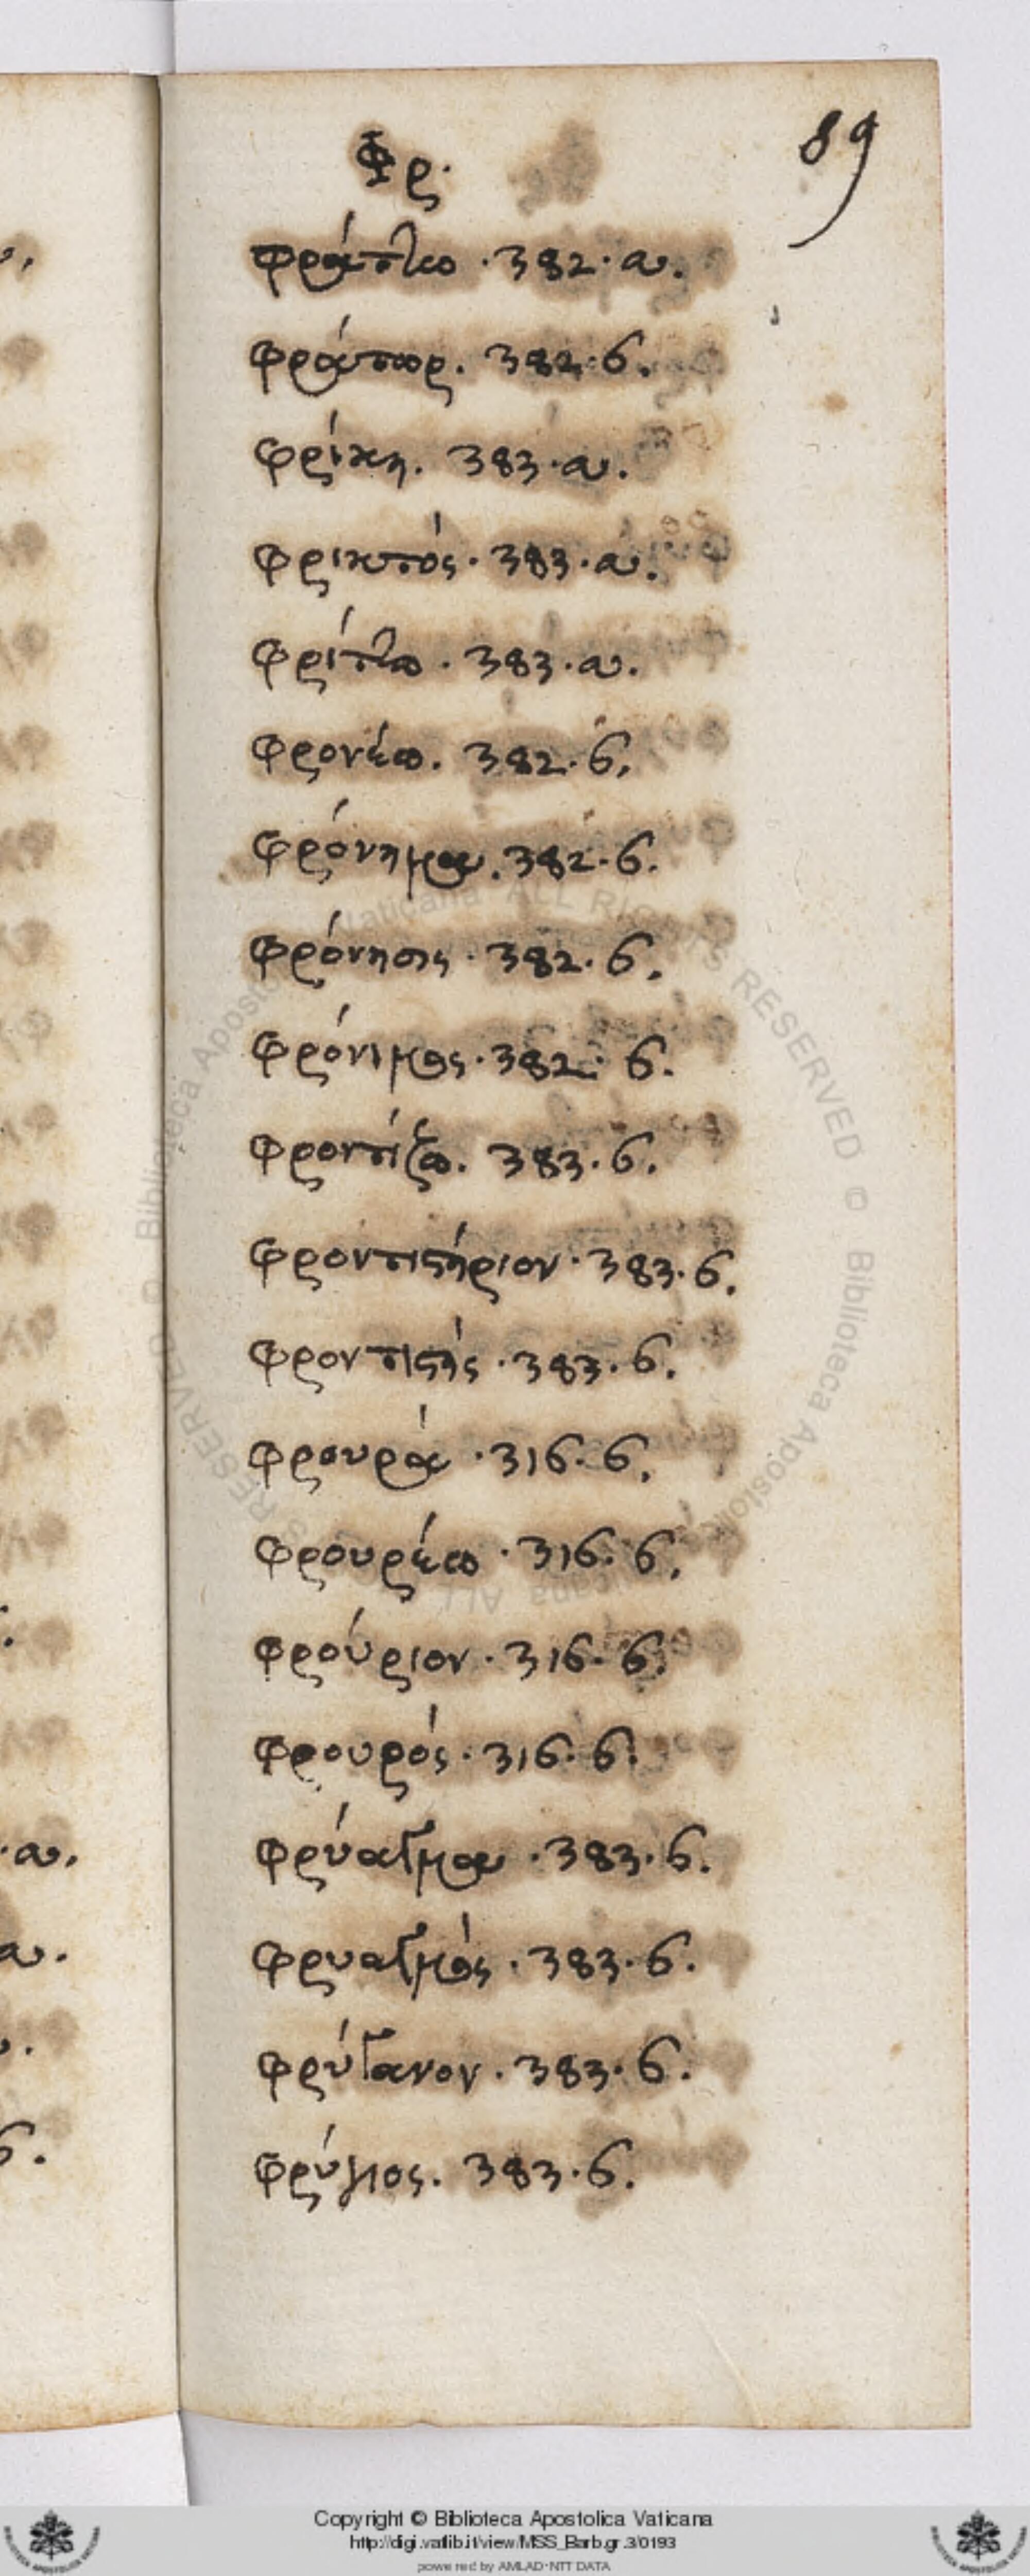 89
Φρ.
φράττω . 382 . α.
φράτωρ . 382 . β.
φρίκη . 383 . α.
φρικτός . 383 . α.
φρίττω . 383 . α.
φρονέω . 382 . β.
φρόνημα . 382 . β.
φρόνησις . 382 . β.
φρόνιμος . 382 . β.
φροντίζω . 383 . β.
φροντιστήριον . 383 . β.
φροντιστής . 383 . β.
φρουρά . 316 . β.
φρουρέω . 316 . β.
φρούριον . 316 . β.
φρουρός . 316 . β.
φρύαγμα . 383 . β.
φρυαγμός . 383 . β.
φρύγανον . 383 . β.
φρύγιος . 383 . β.
Copyright © Biblioteca Apostolica Vaticana
http://digi.vatlib.it/view/MSS_Barb.gr.3/0193
powered by AMLAD·NTT DATA